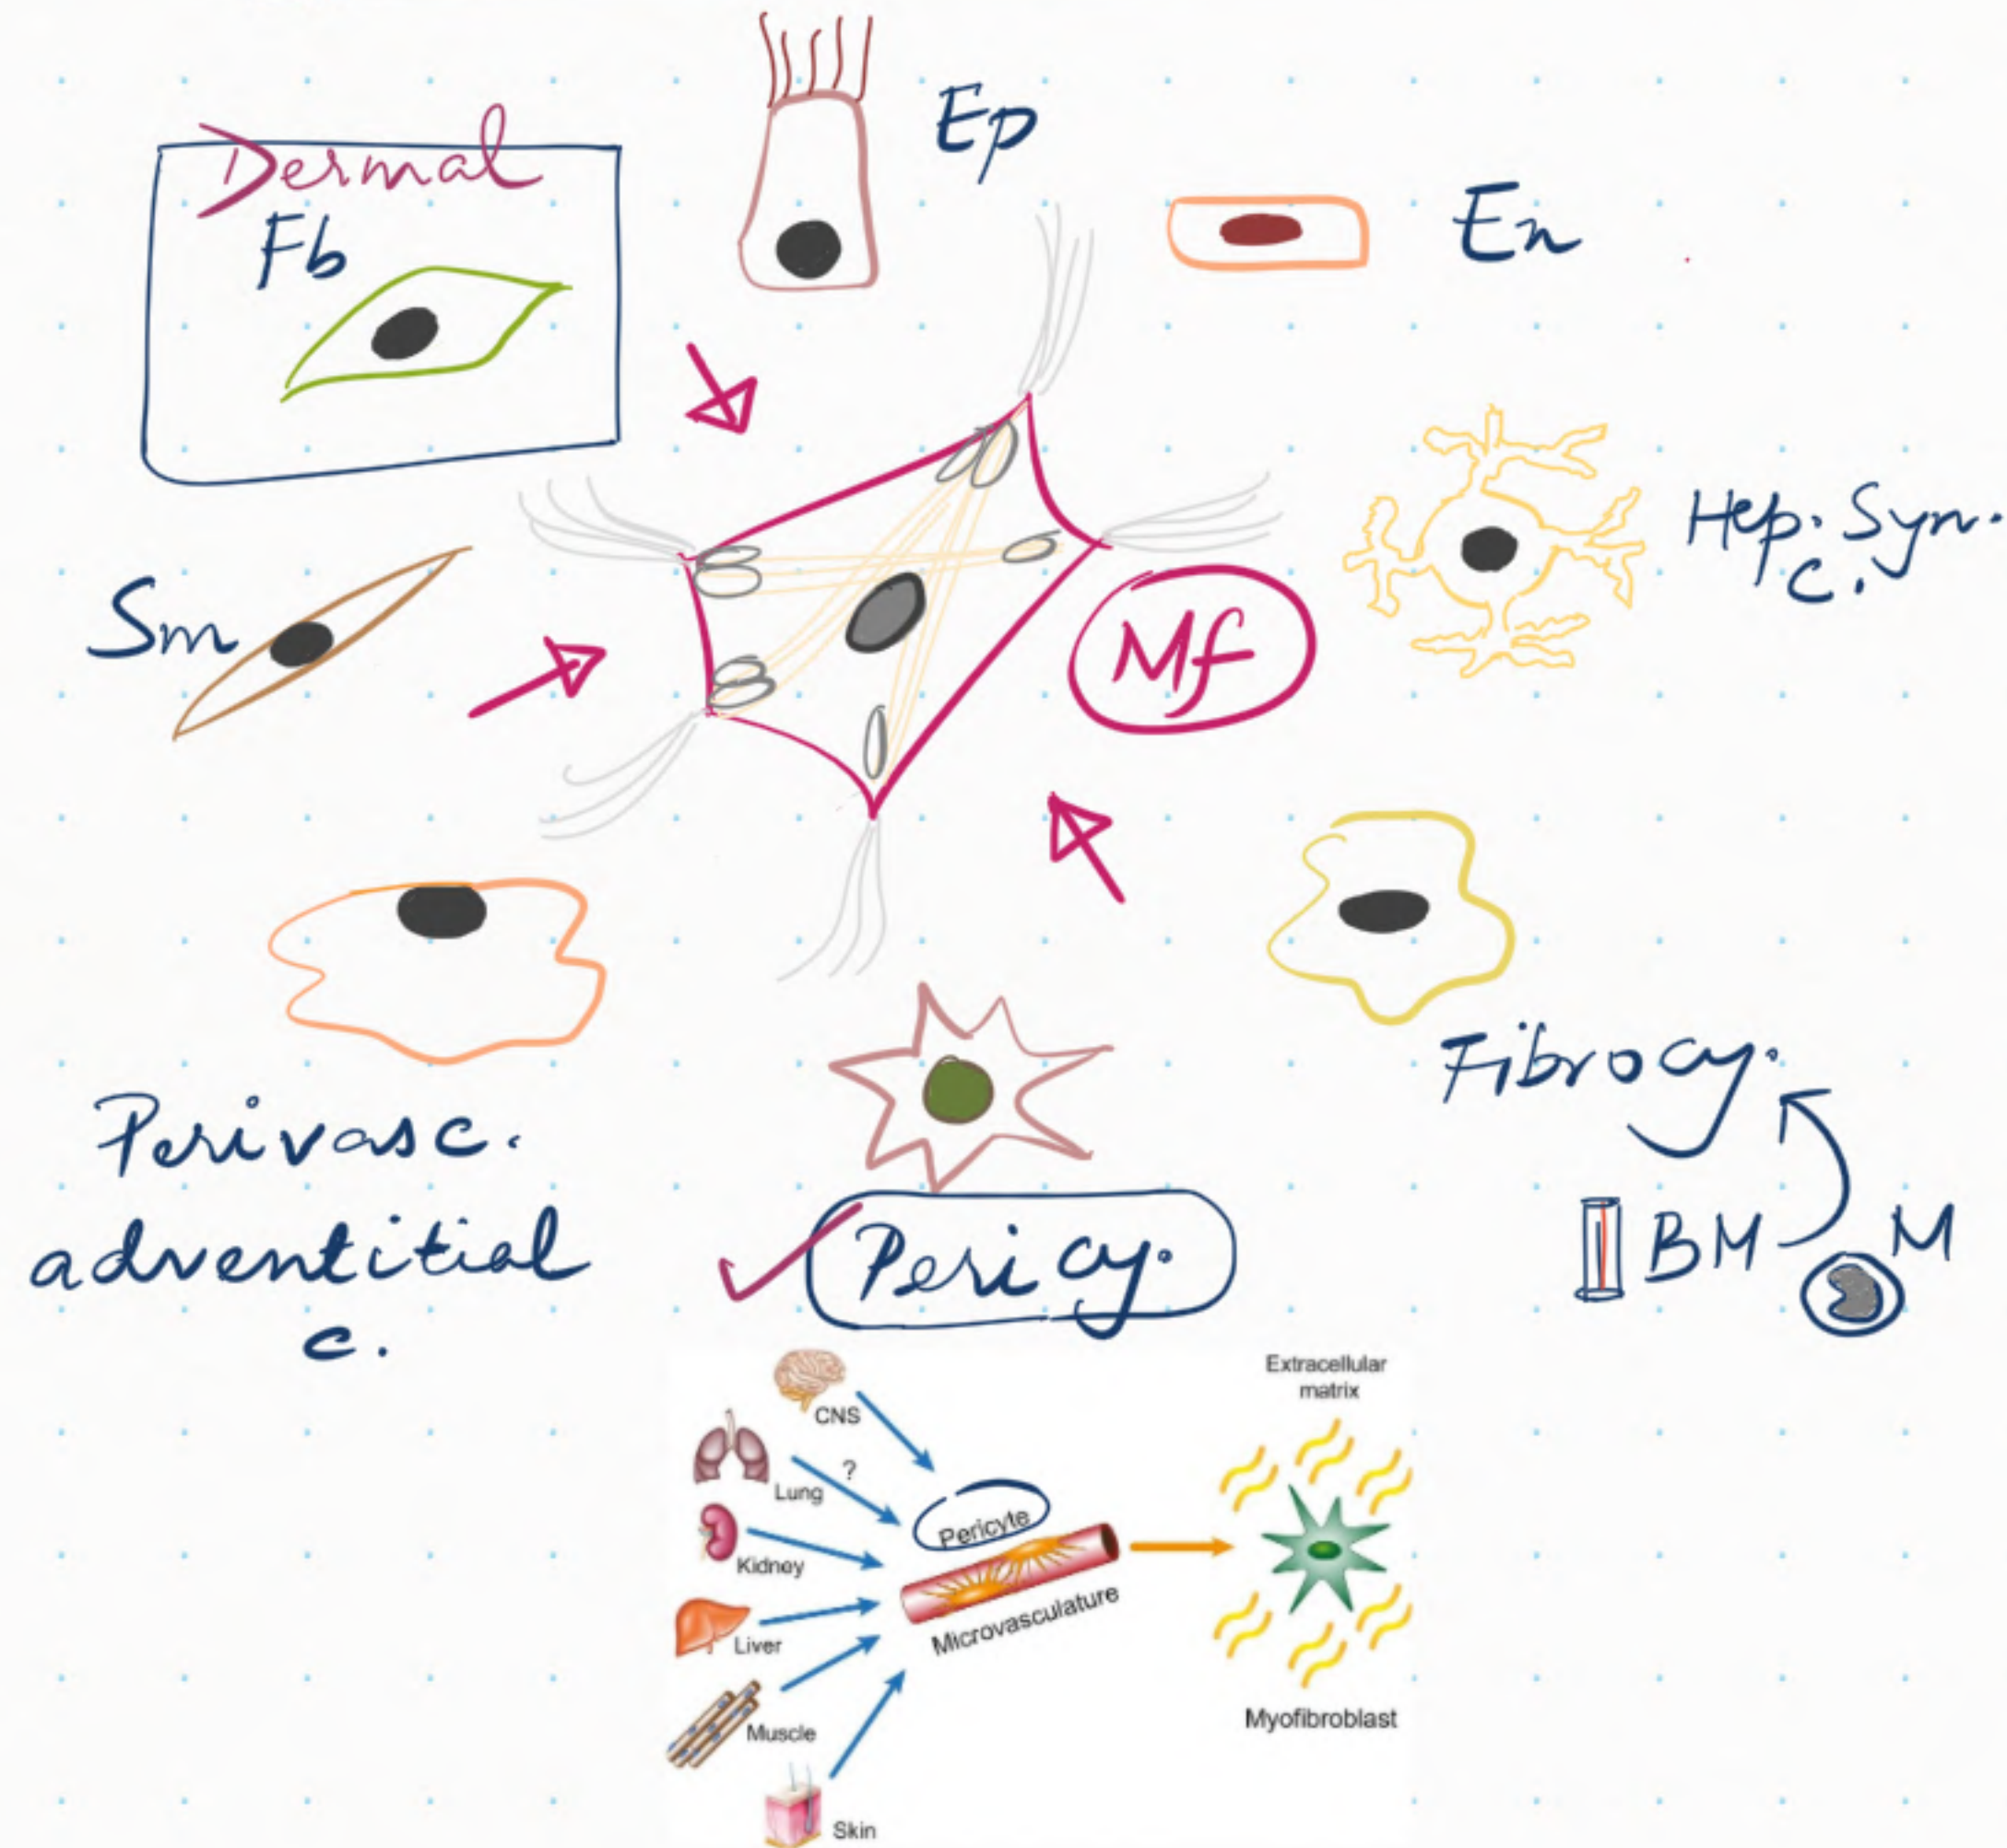 Ep
Dermal
Fb
En
Hep. Syn.
c.
Sm
Mf
Fibrocy.
Perivasc.
adventitial
c.
Pericy.
BM
M
CNS
Lung
?
Kidney
Liver
Muscle
Skin
Pericyte
Microvasculature
Extracellular
matrix
Myofibroblast